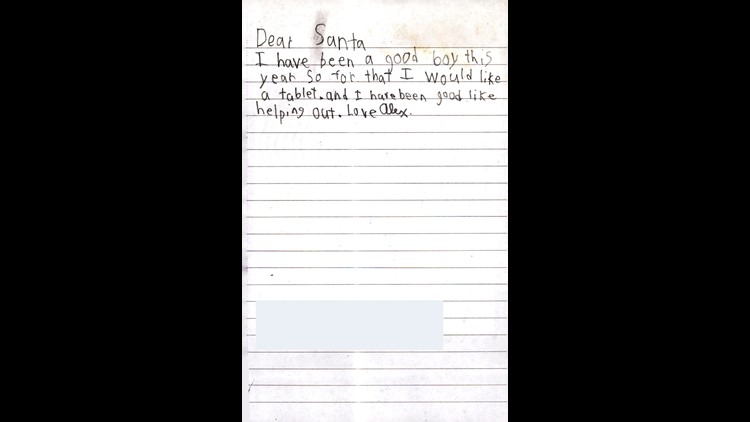 Dear Santa
I have been a good boy this
year so for that I would like
a tablet. and I have been good like
helping out. Love Alex.